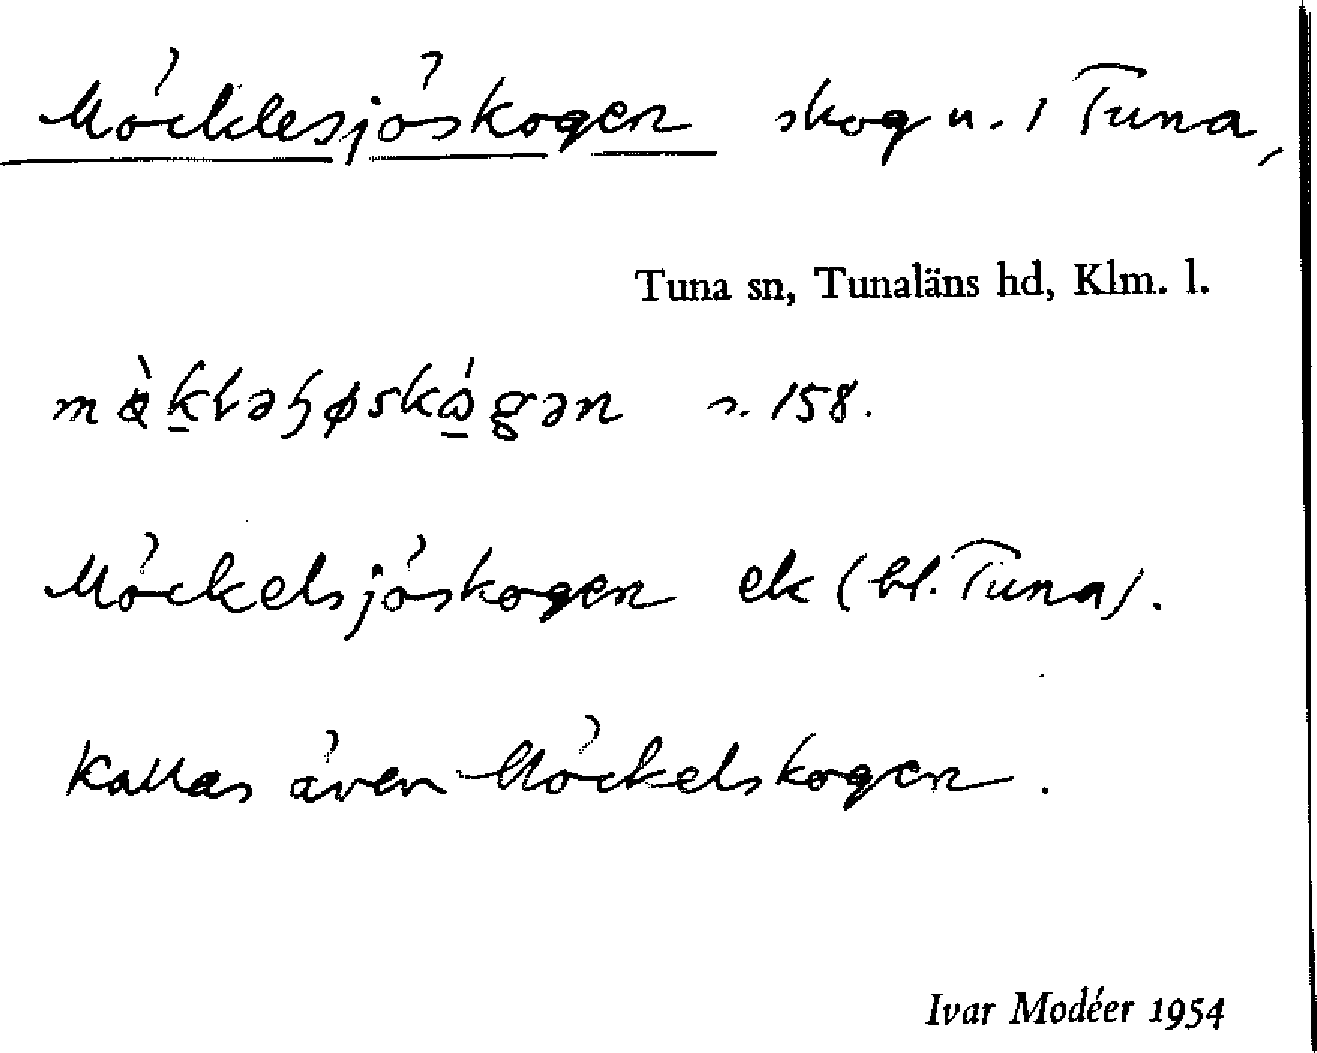 Möcklesjöskogen skog u. 1 Tuna,
Tuna sn, Tunaläns hd, Klm. l.
s. 158.
Möckelsjöskogen ek (bl. Tuna).
Kallas även Möckelskogen.
Ivar Modéer 1954